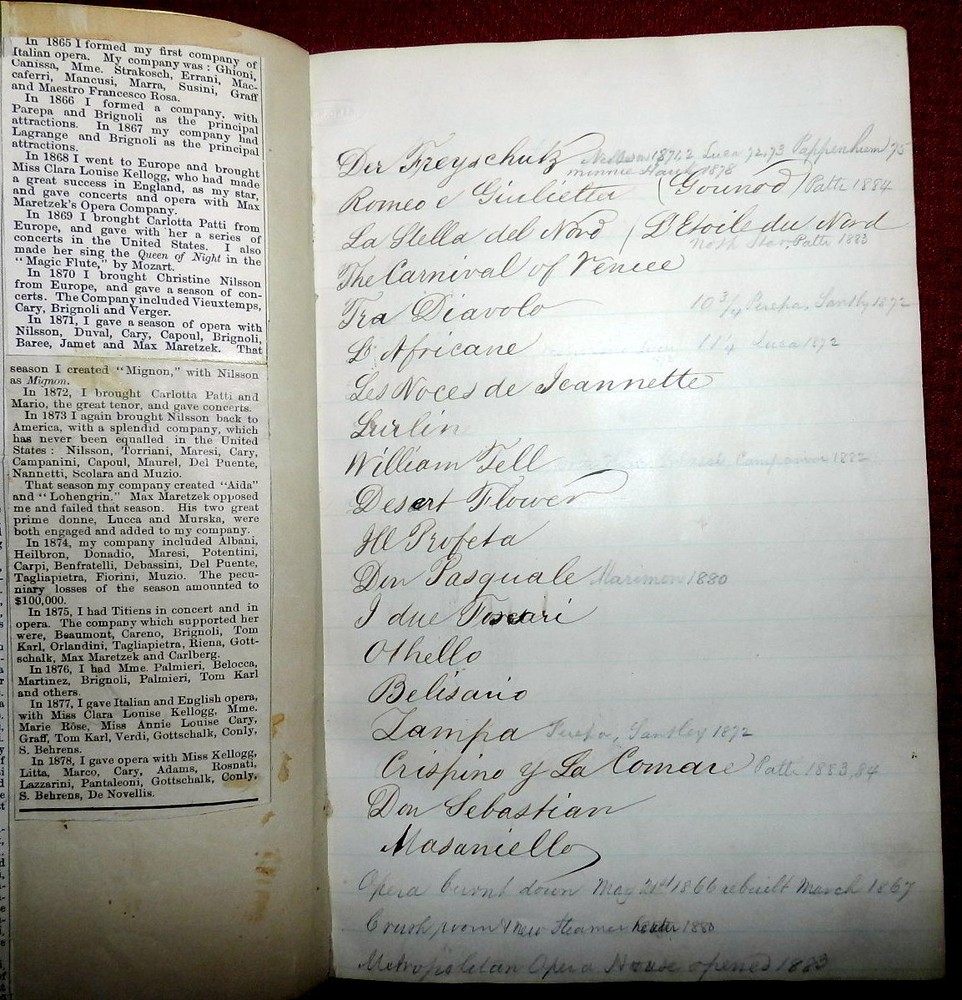 In 1865 I formed my first company of
Italian opera. My company was : Ghioni,
Canissa, Mme. Strakosch, Errani, Mac-
caferri, Mancusi, Marra, Susini, Graff
and Maestro Francesco Rosa.
In 1866 I formed a company, with
Parepa and Brignoli as the principal
attractions. In 1867 my company had
Lagrange and Brignoli as the principal
attractions.
In 1868 I went to Europe and brought
Miss Clara Louise Kellogg, who had made
a great success in England, as my star,
and gave concerts and opera with Max
Maretzek's Opera Company.
In 1869 I brought Carlotta Patti from
Europe, and gave with her a series of
concerts in the United States. I also
made her sing the Queen of Night in the
"Magic Flute," by Mozart.
In 1870 I brought Christine Nilsson
from Europe, and gave a season of con-
certs. The Company included Vieuxtemps,
Cary, Brignoli and Verger.
In 1871, I gave a season of opera with
Nilsson, Duval, Cary, Capoul, Brignoli,
Baree, Jamet and Max Maretzek. That
season I created "Mignon," with Nilsson
as Mignon.
In 1872, I brought Carlotta Patti and
Mario, the great tenor, and gave concerts.
In 1873 I again brought Nilsson back to
America, with a splendid company, which
has never been equalled in the United
States : Nilsson, Torriani, Maresi, Cary,
Campanini, Capoul, Maurel, Del Puente,
Nannetti, Scolara and Muzio.
That season my company created "Aida"
and "Lohengrin." Max Maretzek opposed
me and failed that season. His two great
prime donne, Lucca and Murska, were
both engaged and added to my company.
In 1874, my company included Albani,
Heilbron, Donadio, Maresi, Potentini,
Carpi, Benfratelli, Debassini, Del Puente,
Tagliapietra, Fiorini, Muzio. The pecu-
niary losses of the season amounted to
$100,000.
In 1875, I had Titiens in concert and in
opera. The company which supported her
were, Beaumont, Careno, Brignoli, Tom
Karl, Orlandini, Tagliapietra, Riena, Gott-
schalk, Max Maretzek and Carlberg.
In 1876, I had Mme. Palmieri, Belocca,
Martinez, Brignoli, Palmieri, Tom Karl
and others.
In 1877, I gave Italian and English opera,
with Miss Clara Louise Kellogg, Mme.
Marie Rôse, Miss Annie Louise Cary,
Graff, Tom Karl, Verdi, Gottschalk, Conly,
S. Behrens.
In 1878, I gave opera with Miss Kellogg,
Litta, Marco, Cary, Adams, Rosnati,
Lazzarini, Pantaleoni, Gottschalk, Conly,
S. Behrens, De Novellis.
Der Freyschutz 1871,2 Luca 72,73 Pappenheim 75
minnie Hauck 1878
Romeo e Giulietta (Gounod) Patti 1884
La Stella del Nord / L'Etoile du Nord
North Star, Patti 1883
The Carnival of Venice
Fra Diavolo 10 3/4 Perepa, Santley 1872
L'Africane 11 1/4 Luca 1872
Les Noces de Jeannette
Lurline
William Tell Campanini 1882
Desert Flower
Il Profeta
Don Pasquale Marimon 1880
I due Foscari
Othello
Belisario
Zampa Perepa, Santley 1872
Crispino y La Comare Patti 1883,84
Don Sebastian
Masaniello
Opera burnt down May 21st 1866 rebuilt March 1867
Crush room & new Steamer heater 1880
Metropolitan Opera House opened 1883